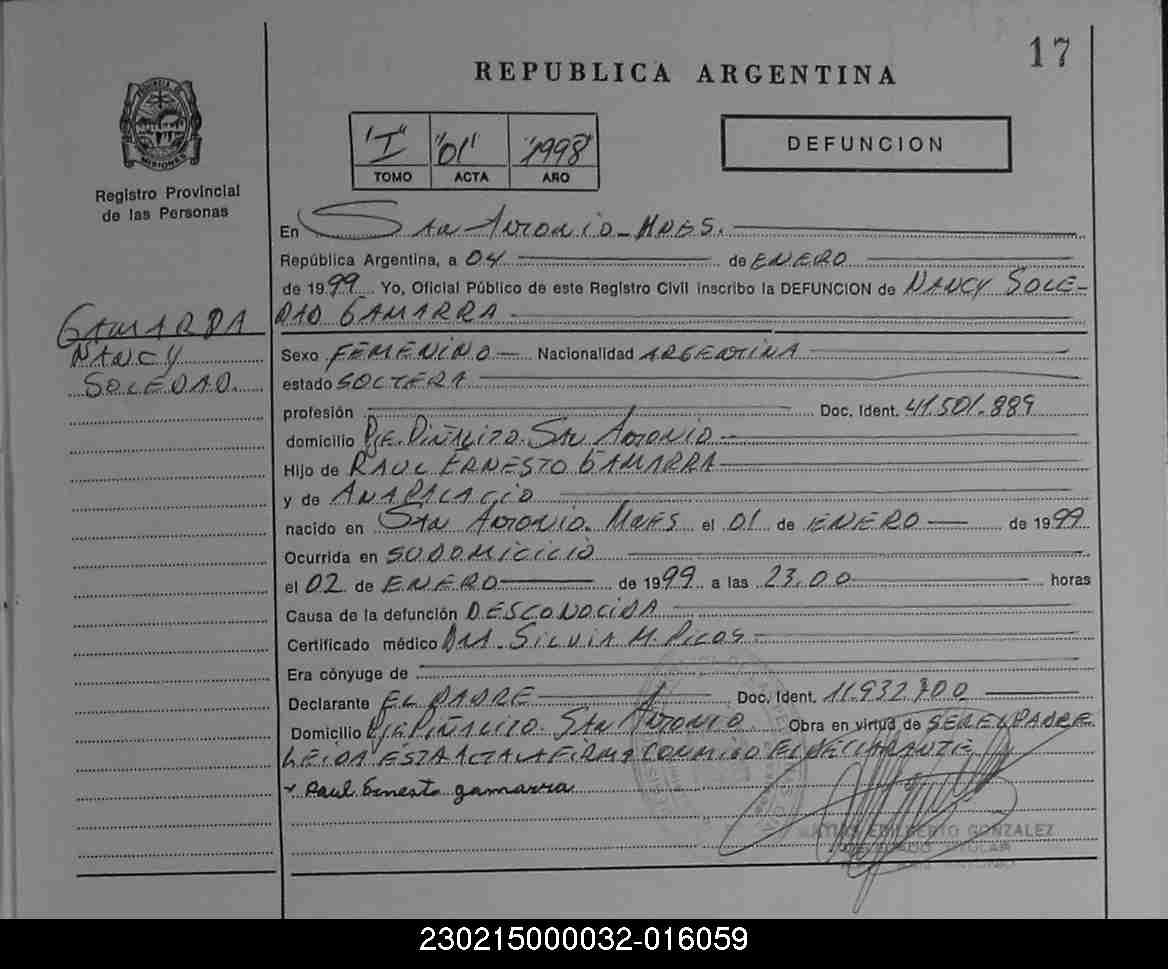 17
REPUBLICA ARGENTINA
PROVINCIA DE MISIONES
"I" "01" 1998
TOMO ACTA AÑO
DEFUNCION
Registro Provincial
de las Personas
En San Antonio - Mnes.
República Argentina, a 04 de ENERO
de 1999 Yo, Oficial Público de este Registro Civil inscribo la DEFUNCION de NANCY SOLE-
DAD GAMARRA
GAMARRA
NANCY
SOLEDAD.
Sexo FEMENINO Nacionalidad ARGENTINA
estado SOLTERA
profesión Doc. Ident. 41.501.889
domicilio Pje. PIÑALITO. SAN ANTONIO
Hijo de RAUL ERNESTO GAMARRA
y de ANA PALACIO
nacido en SAN ANTONIO. Mnes el 01 de ENERO de 1999
Ocurrida en SU DOMICILIO
el 02 de ENERO de 1999 a las 23.00 horas
Causa de la defunción DESCONOCIDA
Certificado médico DRA. SILVIA M. PICOS
Era cónyuge de
Declarante EL PADRE Doc. Ident. 11.932.700
Domicilio Pje PIÑALITO. SAN ANTONIO. Obra en virtud de SER EL PADRE.
LEIDA ESTA ACTA LA FIRMA CONMIGO EL DECLARANTE
Raul Ernesto gamarra
EDILBERTO GONZALEZ
TITULAR
230215000032-016059